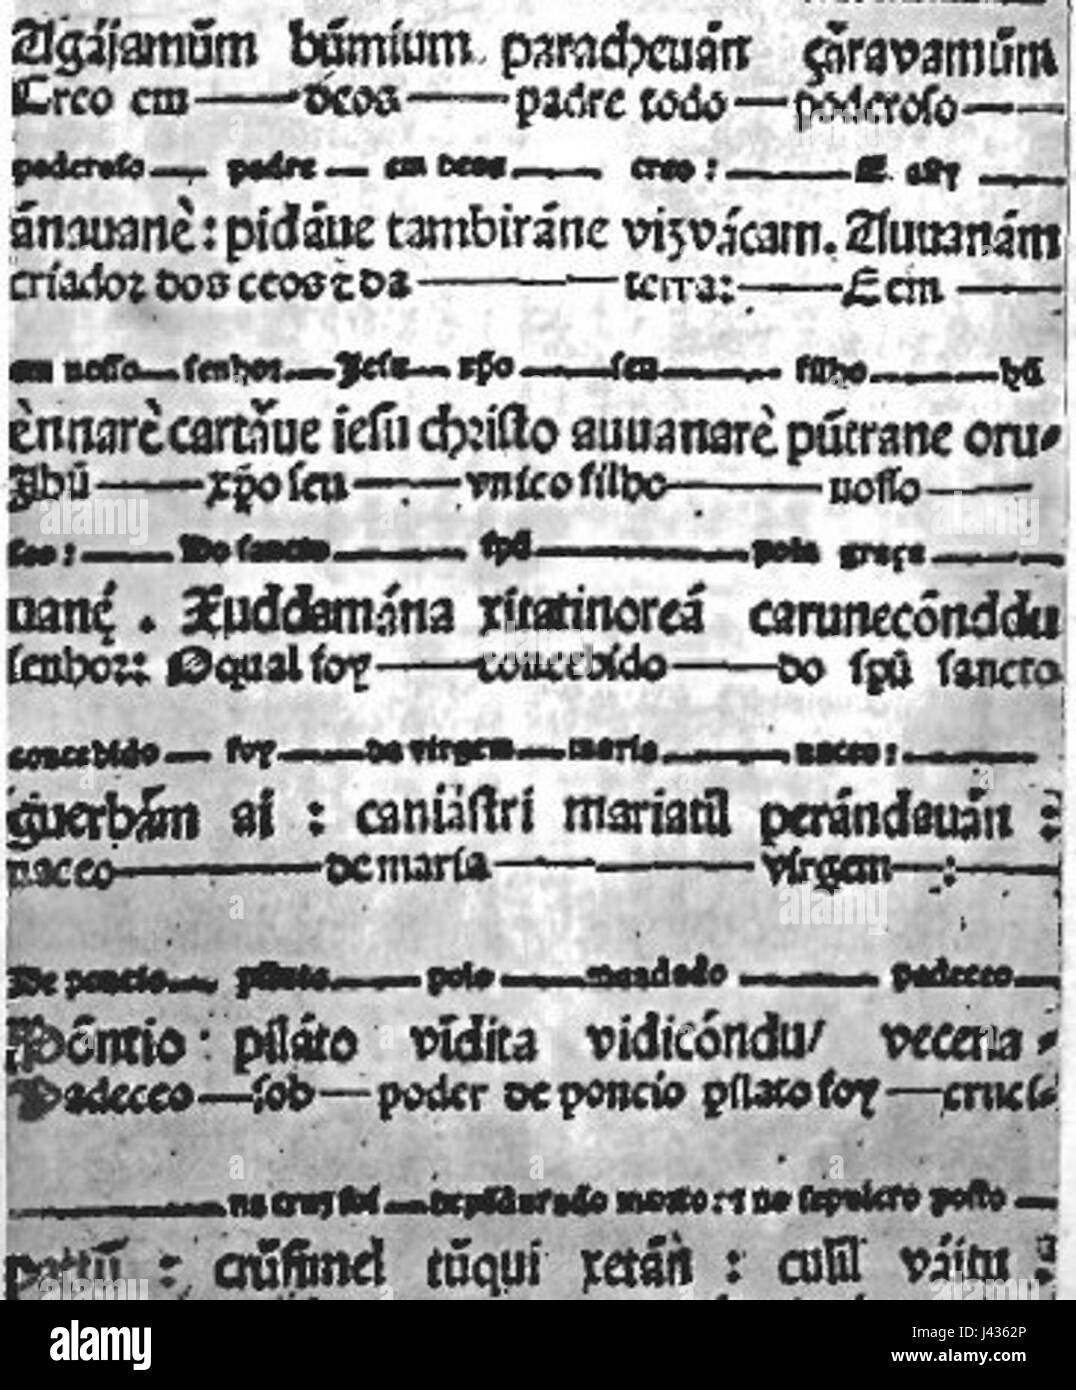 Agájamũm bũmium paracheuán çáravamũm
Creo em deos padre todo poderoso
poderoso padre em deos creo:
ánauanè: pidáue tambiráne vizvácam. Auuanám
criador dos ceos ꝛ da terra: E em
em nosso senhor Jesu xp̃o seu filho hũ
ènnarè cartáue iesu christo auuanarè pũtrane oru
Ihũ xp̃o seu vnico filho nosso
soo: Do sancto spũ pola graça
uané. Xuddamána xiratinoreá carunecónddu
senhor: O qual foy concebido do spũ sancto
concebido foy da virgem maria naceo:
guerbám ai: caniástri mariatil perándauán:
naceo de maria virgem:
De poncio pilato polo mandado padeceo
Pôntio: piláto vĩdita vidicóndu/ vecena
Padeceo sob poder de poncio pilato foy cruci
na cruz foi dependurado morto: ꝛ no sepulcro posto
pattũ: crũsimel tũqui xetán: culil váitu:
alamy
J4362P
www.alamy.com